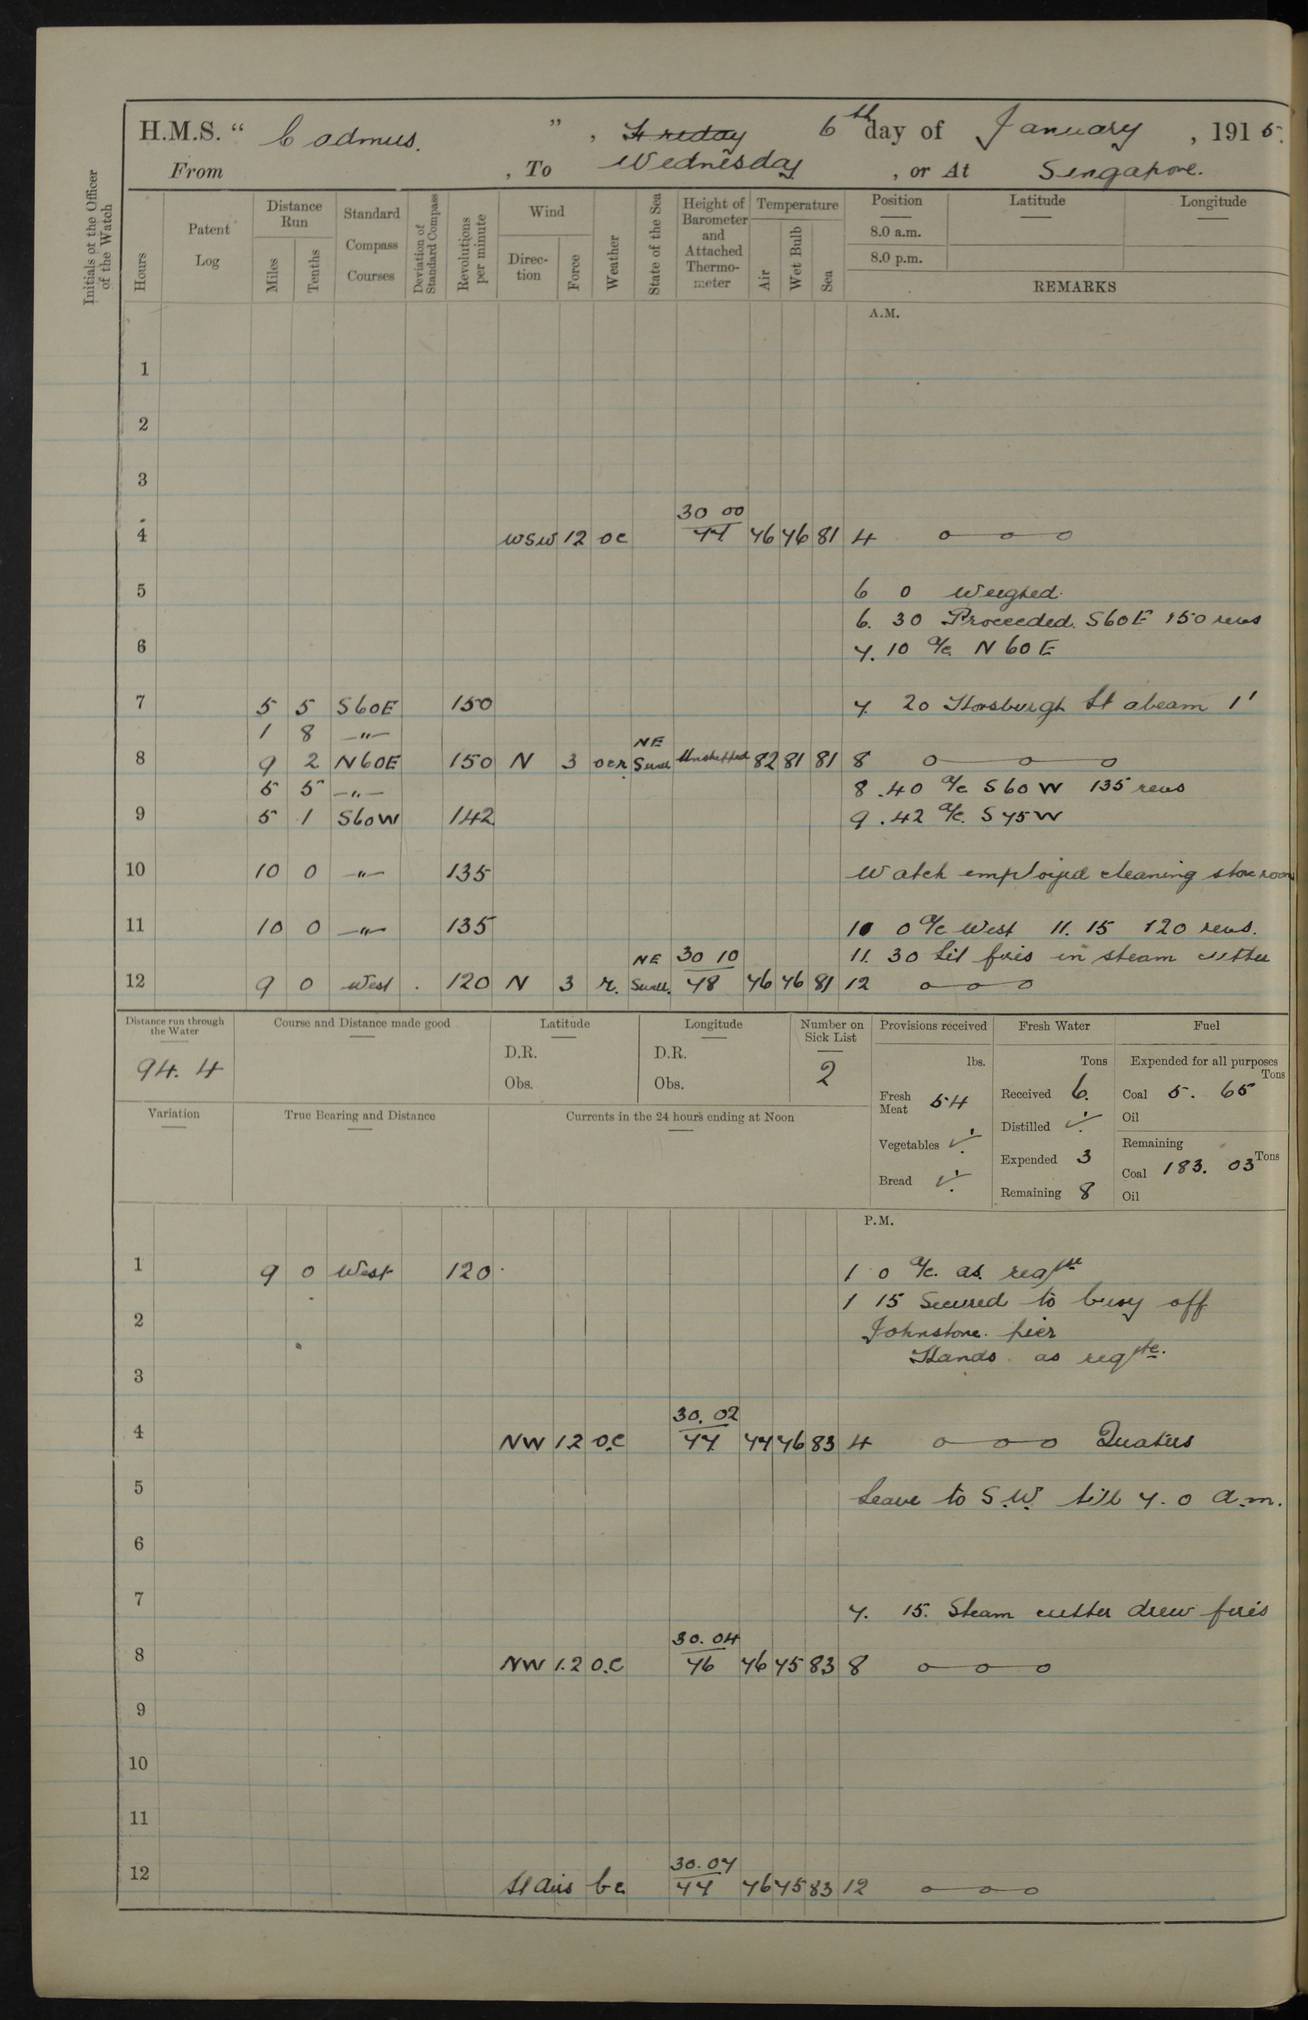 H.M.S. “ Cadmus. ” , Friday 6th day of January , 1915.
From , To Wednesday , or At Singapore.
Initials of the Officer of the Watch
Hours
Patent Log
Distance Run
Miles
Tenths
Standard Compass Courses
Deviation of Standard Compass
Revolutions per minute
Wind
Direction
Force
Weather
State of the Sea
Height of Barometer and Attached Thermometer
Temperature
Air
Wet Bulb
Sea
Position
8.0 a.m.
8.0 p.m.
Latitude
Longitude
REMARKS
A.M.
1
2
3
30 00
4 WSW 12 oc 77 76 76 81 4 o—o—o
5 6 0 Weighed.
6. 30 Proceeded. S60E 150 revs
6 7. 10 a/c N 60 E
7 5 5 S60E 150 7 20 Horsburgh Lt abeam 1'
1 8 —"—
NE
8 9 2 N60E 150 N 3 ocr. Swell Unshipped 82 81 81 8 o—o—o
5 5 —"— 8 .40 a/c S60W 135 revs
9 5 1 S60W 142 9 .42 a/c. S 75W
10 10 0 —"— 135 Watch employed cleaning store rooms
11 10 0 —"— 135 10 0 a/c West 11. 15 120 revs.
NE 30 10 11. 30 Lit fires in steam cutter
12 9 0 West . 120 N 3 r. Swell. 78 76 76 81 12 o—o—o
Distance run through the Water
94. 4
Course and Distance made good
Latitude
D.R.
Obs.
Longitude
D.R.
Obs.
Number on Sick List
2
Provisions received
lbs.
Fresh Meat 54
Vegetables ✓.
Bread ✓.
Fresh Water
Tons
Received 6.
Distilled ✓.
Expended 3
Remaining 8
Fuel
Expended for all purposes
Tons
Coal 5. 65
Oil
Remaining
Coal 183. 03 Tons
Oil
Variation
True Bearing and Distance
Currents in the 24 hours ending at Noon
P.M.
1 9 0 West 120 1 0 a/c. as. reqste
1 15 Secured to buoy off
2 Johnstone. pier
Hands. as reqste.
3
30. 02
4 NW 1.2 o.c 77 77 76 83 4 o—o—o Quaters
5 Leave to S.W. till 7. 0 a.m.
6
7 7. 15. Steam cutter drew fires
30. 04
8 NW 1.2 o.c 76 76 75 83 8 o—o—o
9
10
11
30. 07
12 Lt airs bc 77 76 75 83 12 o—o—o